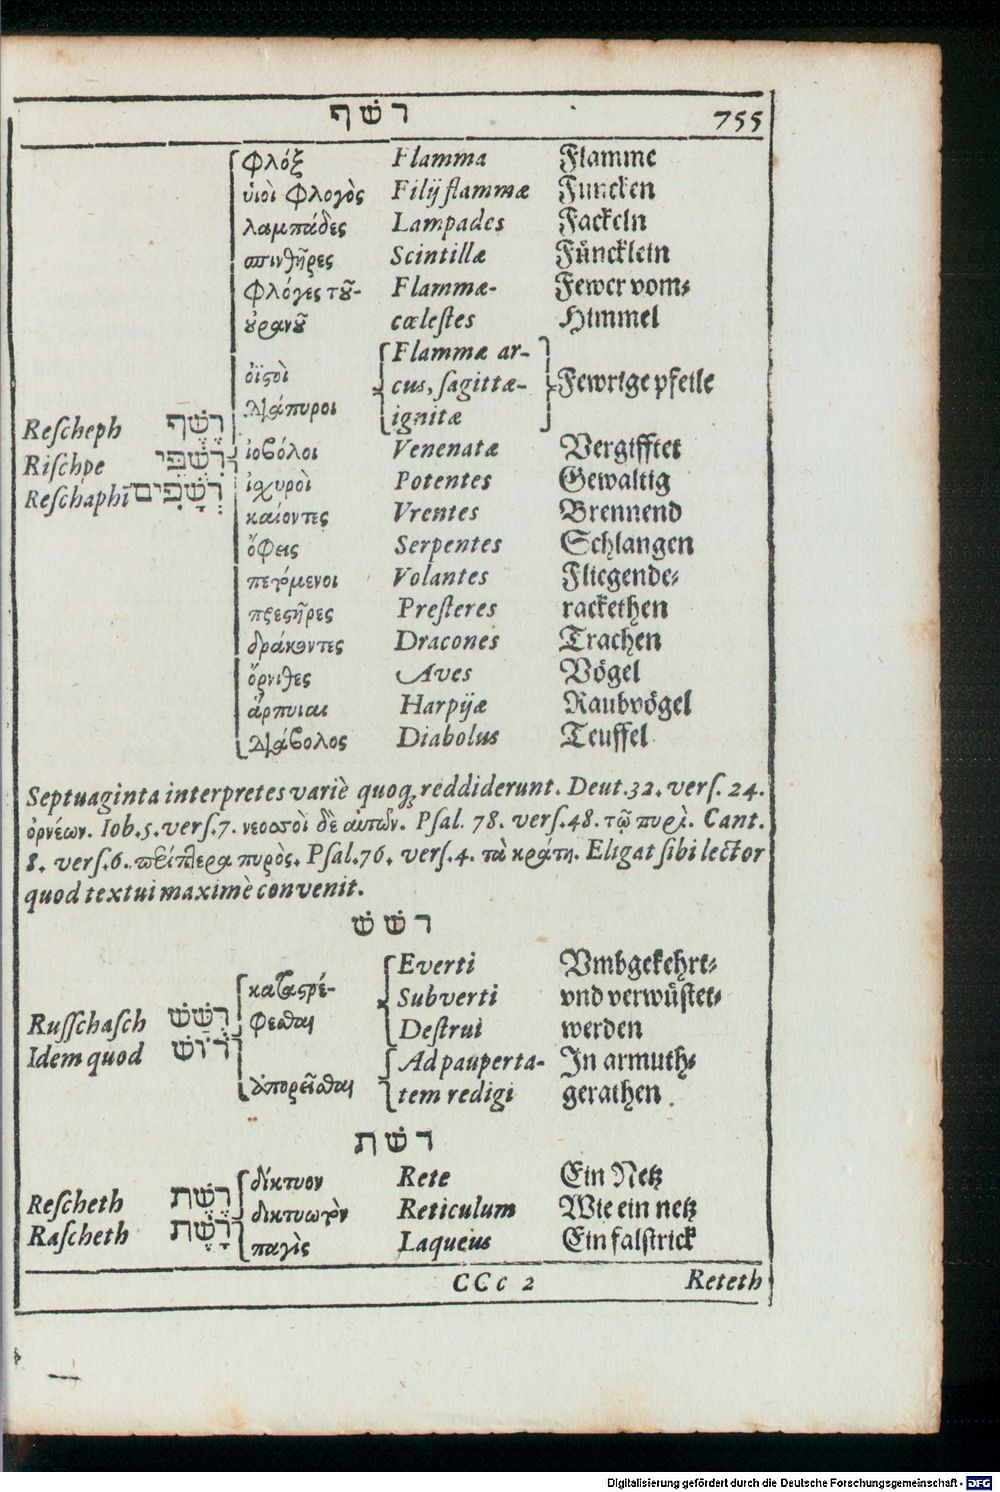 רשף 755
Φλόξ Flamma Flamme
ὑιοὶ Φλογὸς Filij flammæ Funcken
λαμπάδες Lampades Fackeln
σπινθῆρες Scintillæ Füncklein
Φλόγες τȣ͂- Flammæ- Fewer vom⸗
ȣ̓ρανȣ͂ cœleſtes Himmel
Flammæ ar-
ὀϊςοὶ cus, ſagittæ- Fewrige pfeile
διάπυροι ignitæ
Reſcheph רֶשֶׁף ἰοβόλοι Venenatæ Vergifftet
Riſchpe רִשְׁפֵּי ἰχυροὶ Potentes Gewaltig
Reſchaphi רְשָׁפִים καίοντες Vrentes Brennend
ὄφεις Serpentes Schlangen
πετόμενοι Volantes Fliegende⸗
πρεςῆρες Preſteres rackethen
δράκοντες Dracones Trachen
ὄρνιθες Aves Vögel
ἅρπυιαι Harpijæ Raubvögel
Διάβολος Diabolus Teuffel
Septuaginta interpretes variè quoq; reddiderunt. Deut. 32. verſ. 24.
ὀρνέων. Iob. 5. verſ. 7. νεοσσοὶ δὲ αὐτῶν. Pſal. 78. verſ. 48. τῷ πυρὶ. Cant.
8. verſ. 6. περίπτερα πυρὸς. Pſal. 76. verſ. 4. τὰ κράτη. Eligat ſibi lector
quod textui maximè convenit.
רשש
Everti Vmbgekehrt⸗
καταςρέ- Subverti vnd verwüstet⸗
Ruſſchaſch רֻשַּׁשׁ φεσθαι Deſtrui werden
Idem quod רוּשׁ Ad pauperta- In armuth⸗
ἀπορεῖσθαι tem redigi gerathen.
רשת
δίκτυον Rete Ein Netz
Reſcheth רֶשֶׁת δικτυωτὸν Reticulum Wie ein netz
Raſcheth רָשֶׁת παγὶς Laqueus Ein falstrick
CCc 2 Reteth
Digitalisierung gefördert durch die Deutsche Forschungsgemeinschaft - DFG